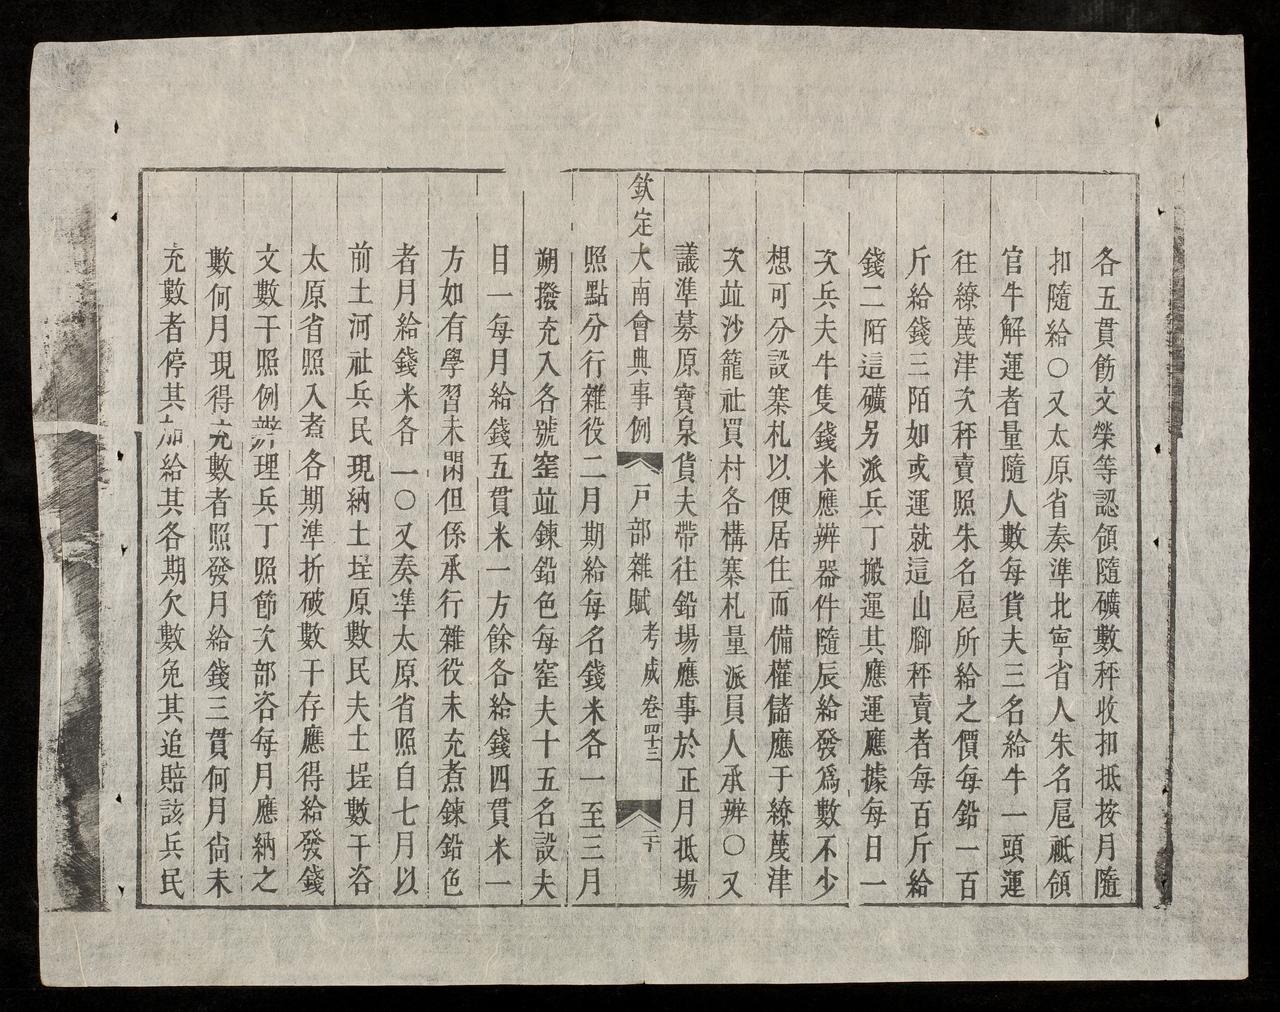 各五貫飭文榮等認領隨礦數秤收扣抵按月隨
扣隨給〇又太原省奏準北寧省人朱名扈祗領
官牛解運者量隨人數每貨夫三名給牛一頭運
往繚蔑津次秤賣照朱名扈所給之價每鉛一百
斤給錢三陌如或運就這山腳秤賣者每百斤給
錢二陌這礦另派兵丁搬運其應運應據每日一
次兵夫牛隻錢米應辦器件隨辰給發爲數不少
想可分設寨札以便居住而備權儲應于繚蔑津
次竝沙籠社買村各構寨札量派員人承辦〇又
議準募原寶泉貨夫帶往鉛場應事於正月抵場
欽定大南會典事例 戶部雜賦 考成 卷四十三 二十
照點分行雜役二月期給每名錢米各一至三月
朔撥充入各號窑竝鍊鉛色每窑夫十五名設夫
目一每月給錢五貫米一方餘各給錢四貫米一
方如有學習未閑但係承行雜役未充煮鍊鉛色
者月給錢米各一〇又奏準太原省照自七月以
前土河社兵民現納土埕原數民夫土埕數干咨
太原省照入煮各期準折破數干存應得給發錢
文數干照例辦理兵丁照節次部咨每月應納之
數何月現得充數者照發月給錢三貫何月尙未
充數者停其加給其各期欠數免其追賠該兵民